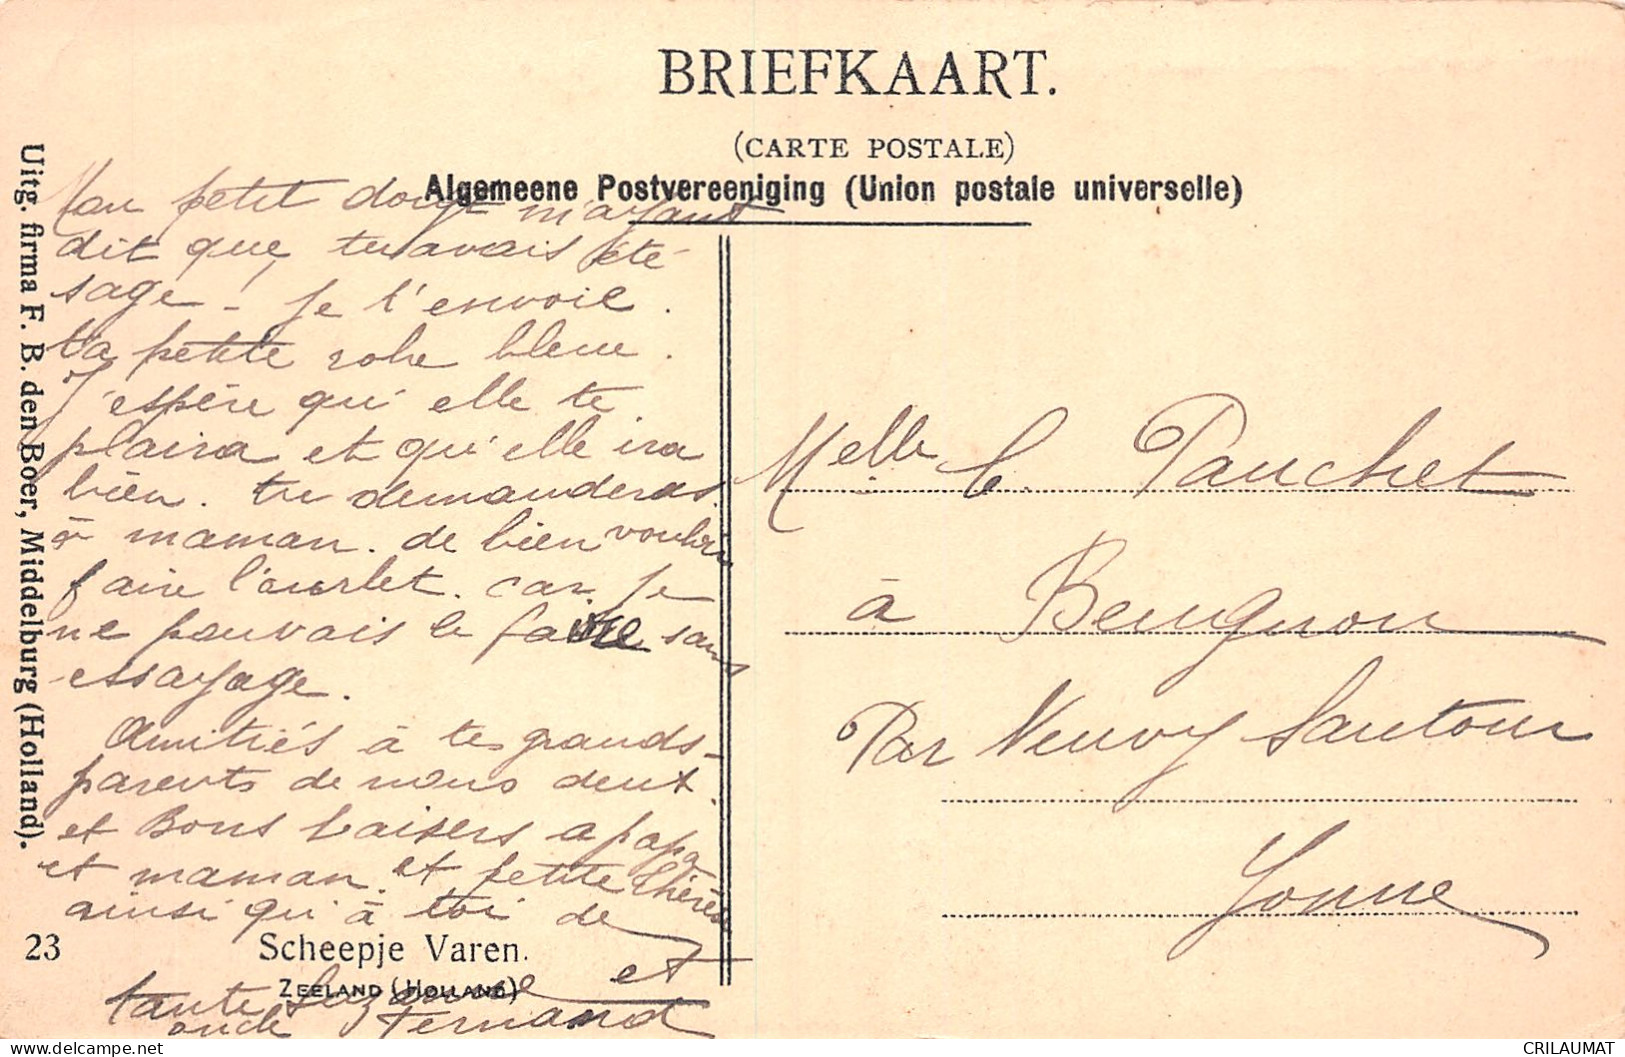 BRIEFKAART.
(CARTE POSTALE)
Algemeene Postvereeniging (Union postale universelle)
Uitg. firma F. B. den Boer, Middelburg (Holland).
Mon petit doigt m'ayant
dit que tu avais été
sage - je t'envoie.
ta petite robe bleue.
J'espère qu'elle te
plaira et qu'elle ira
bien. tu demanderas
à maman. de bien vouloir
faire l'ourlet. car je
ne pouvais le faire sans
essayage.
Amitiés à tes grands-
parents de nous deux.
et Bons baisers a papa
et maman. et petite Thérèse
ainsi qu'à toi de
tante Suzanne et
oncle Fernand
23
Scheepje Varen.
ZEELAND (HOLLAND)
Melle C. Pauchet
à Beugnon
Par Neuvy Sautour
Yonne
CRILAUMAT